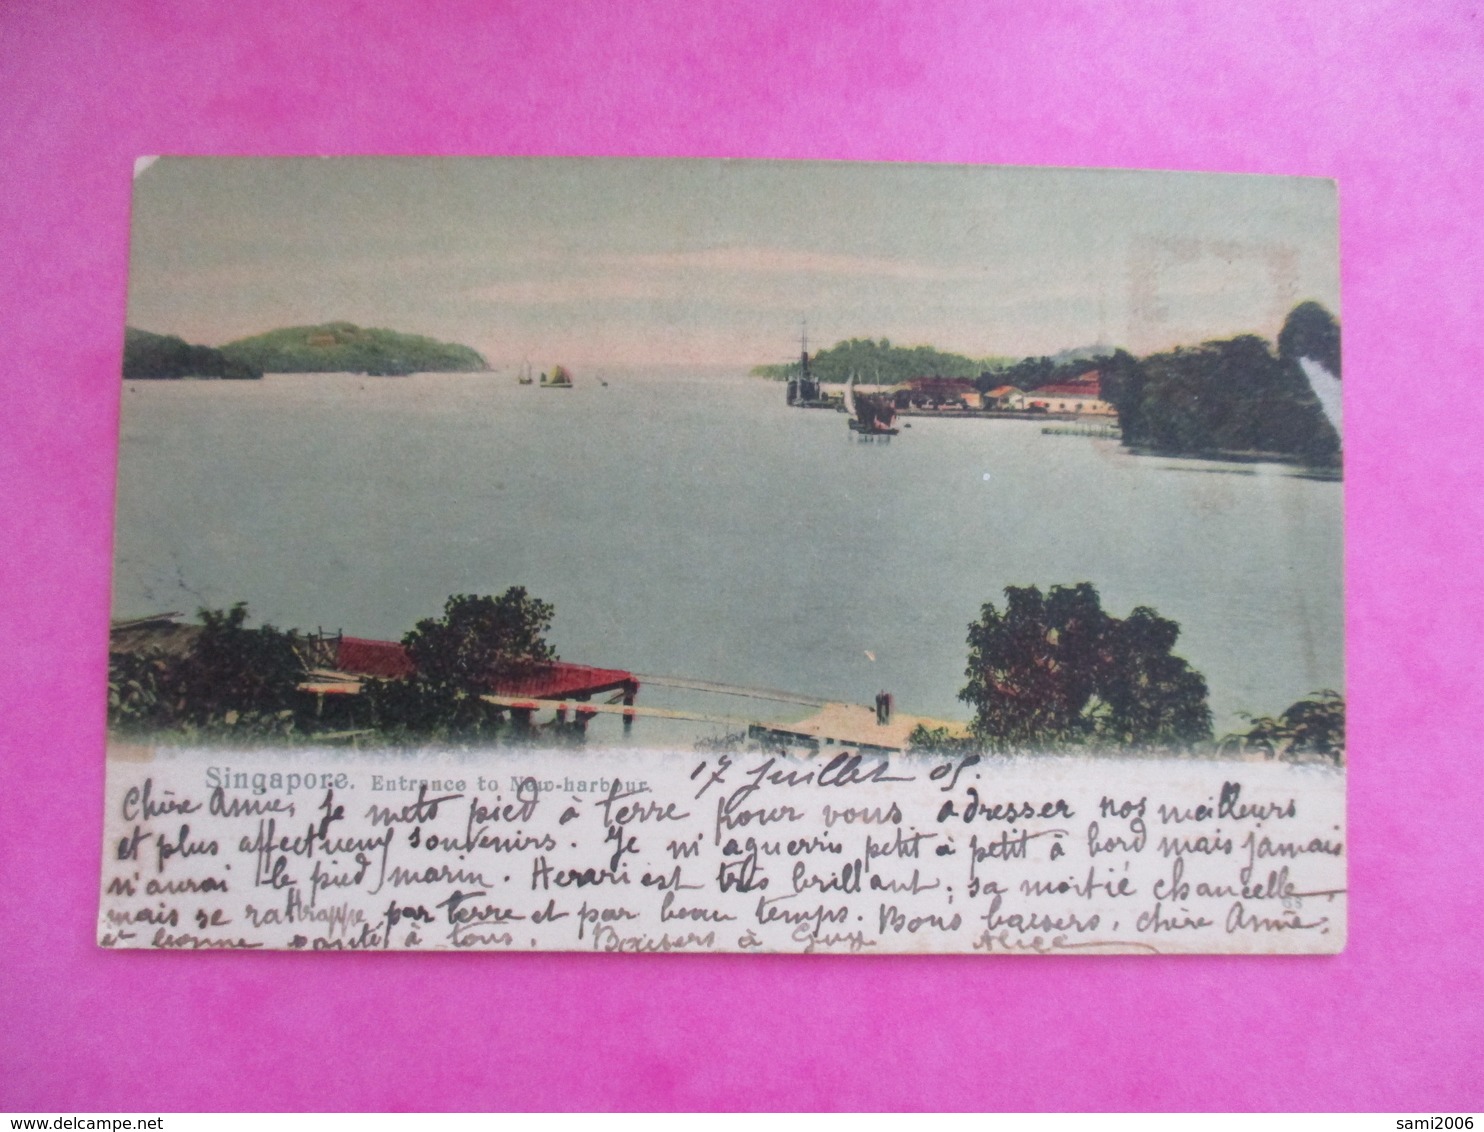 Singapore. Entrance to New-harbour.
17 Juillet 05.
Chère Anne, je mets pied à terre pour vous adresser nos meilleurs
et plus affectueux souvenirs. Je m'aguerris petit à petit à bord mais jamais
n'aurai le pied marin. est très brillant; sa moitié chancelle
68
mais se rattrappe par terre et par beau temps. Bons baisers, chère Anne,
et bonne santé à tous. Baisers à Guy Alice
© delcampe.net
sami2006